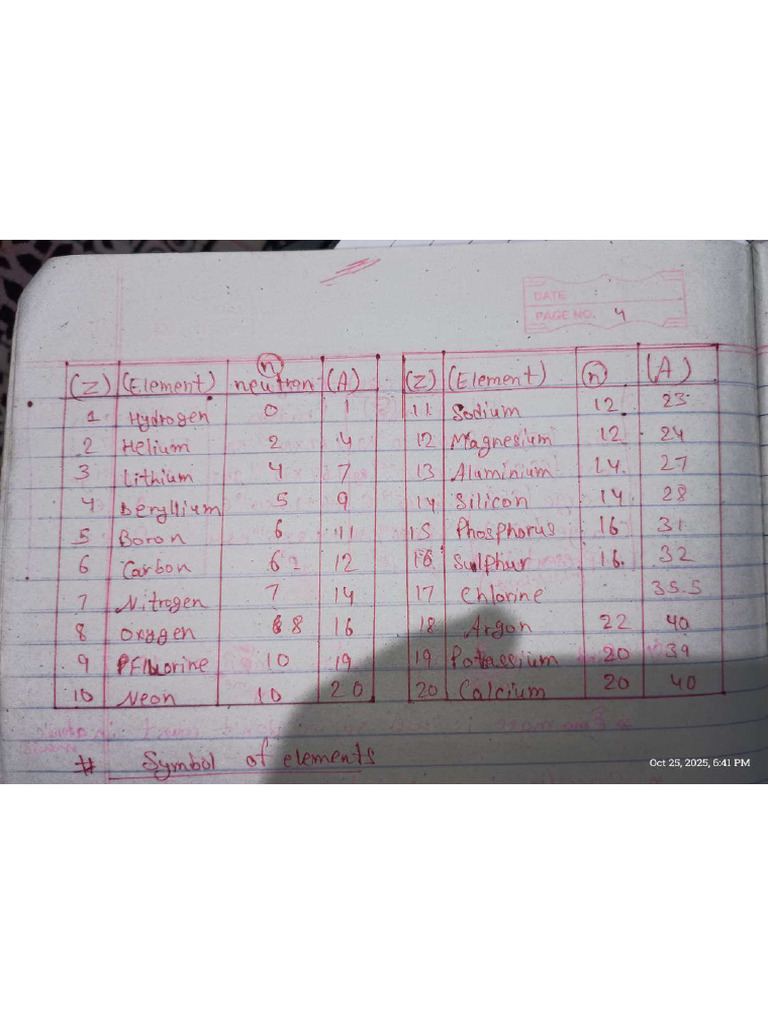 DATE
PAGE NO. 4
(Z) (Element) (n) neutron (A) (Z) (Element) (n) (A)
1 Hydrogen 0 1 11 Sodium 12 23
2 Helium 2 4 12 Magnesium 12 24
3 Lithium 4 7 13 Aluminium 14 27
4 Beryllium 5 9 14 Silicon 14 28
5 Boron 6 11 15 Phosphorus 16 31
6 Carbon 6 12 16 Sulphur 16 32
7 Nitrogen 7 14 17 Chlorine 35.5
8 Oxygen 8 16 18 Argon 22 40
9 Fluorine 10 19 19 Potassium 20 39
10 Neon 10 20 20 Calcium 20 40
# Symbol of elements
Oct 25, 2025, 6:41 PM